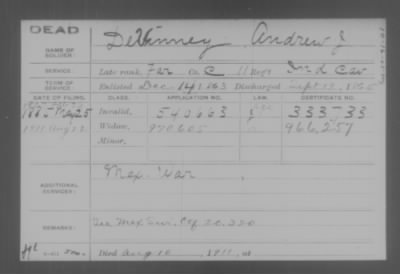 DEAD
NAME OF SOLDIER: DeVinney, Andrew J
SERVICE: Late rank, Far Co. C 11 Reg't Ind Cav
TERM OF SERVICE: Enlisted Dec 14 1863 Discharged Sept 19, 1865
DATE OF FILING. CLASS. APPLICATION NO. LAW. CERTIFICATE NO.
1885 May 25 Invalid, 540663 333-733
1911 Aug Widow, 970605 966,257
Minor,
ADDITIONAL SERVICES: Mex. War
REMARKS: See Mex Sur. Ctf 20,220
Died Aug 10, 1911, at